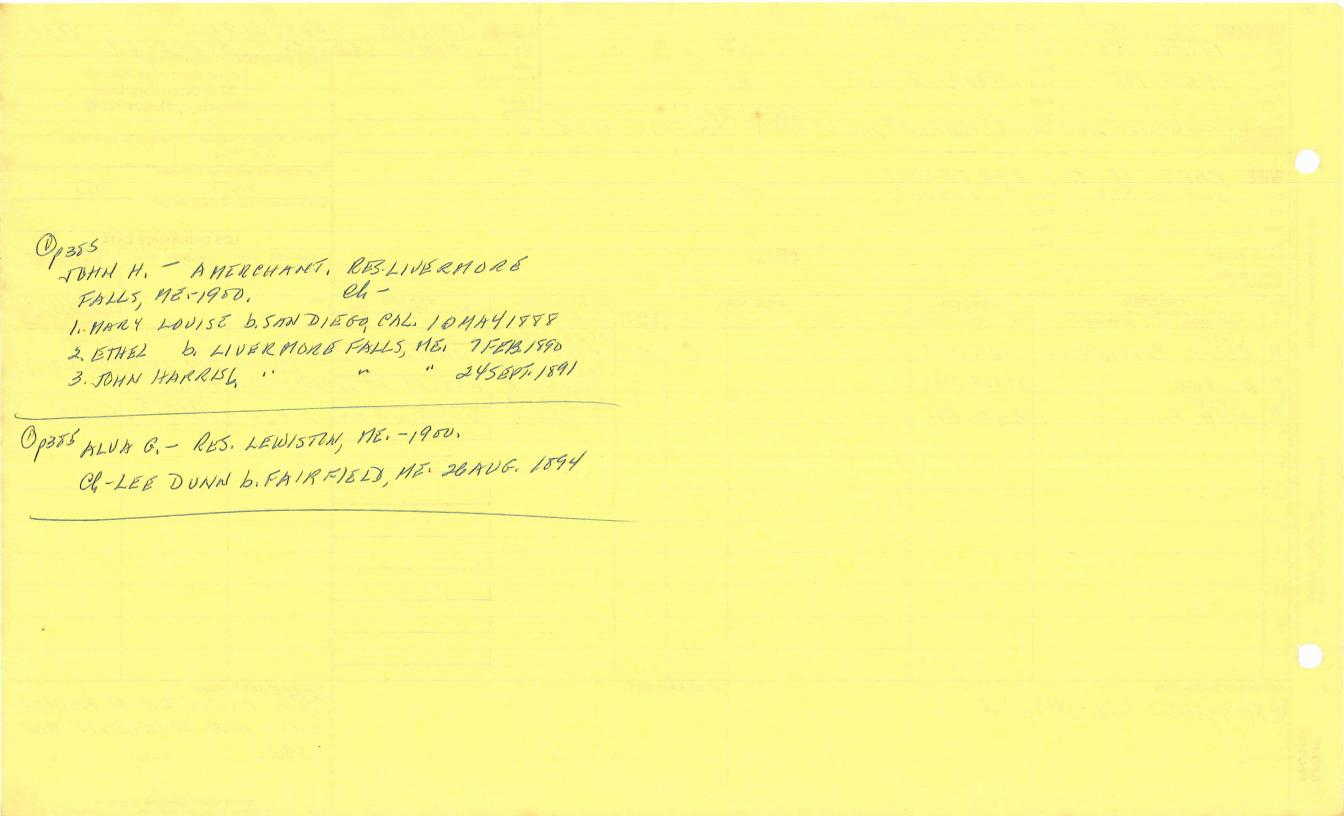 ① p385
JOHN H. – A MERCHANT. RES. LIVERMORE
FALLS, ME.-1900. Ch –
1. MARY LOUISE b. SAN DIEGO, CAL. 10 MAY 1888
2. ETHEL b. LIVERMORE FALLS, ME. 7 FEB. 1890
3. JOHN HARRIS, " " " 24 SEPT. 1891
① p385 ALVA G. – RES. LEWISTON, ME. -1900.
Ch - LEE DUNN b. FAIRFIELD, ME. 26 AUG. 1894